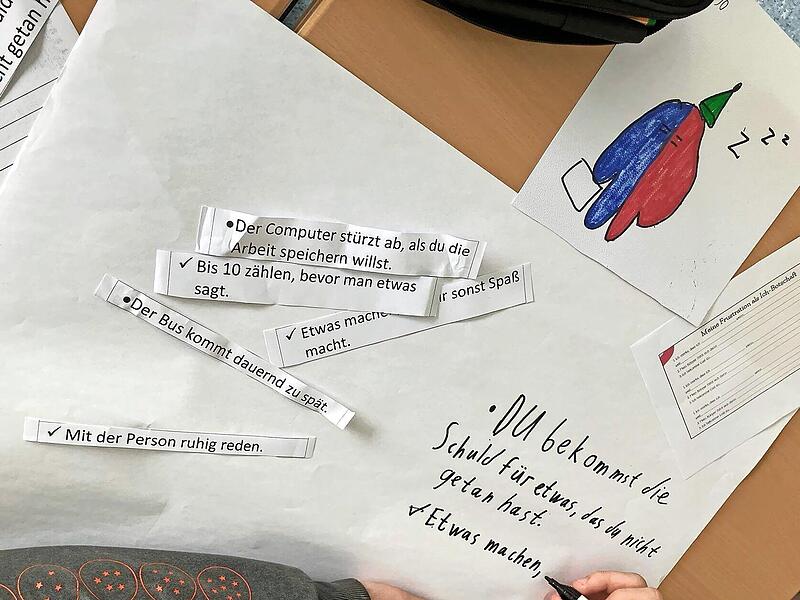 ht getan h
• Der Computer stürzt ab, als du die
Arbeit speichern willst.
✓ Bis 10 zählen, bevor man etwas
sagt.
✓ Etwas mache r sonst Spaß
macht.
• Der Bus kommt dauernd zu spät.
✓ Mit der Person ruhig reden.
• DU bekommst die
Schuld für etwas, das du nicht
getan hast.
✓ Etwas machen,
Z z z
Meine Frustration als Ich-Botschaft